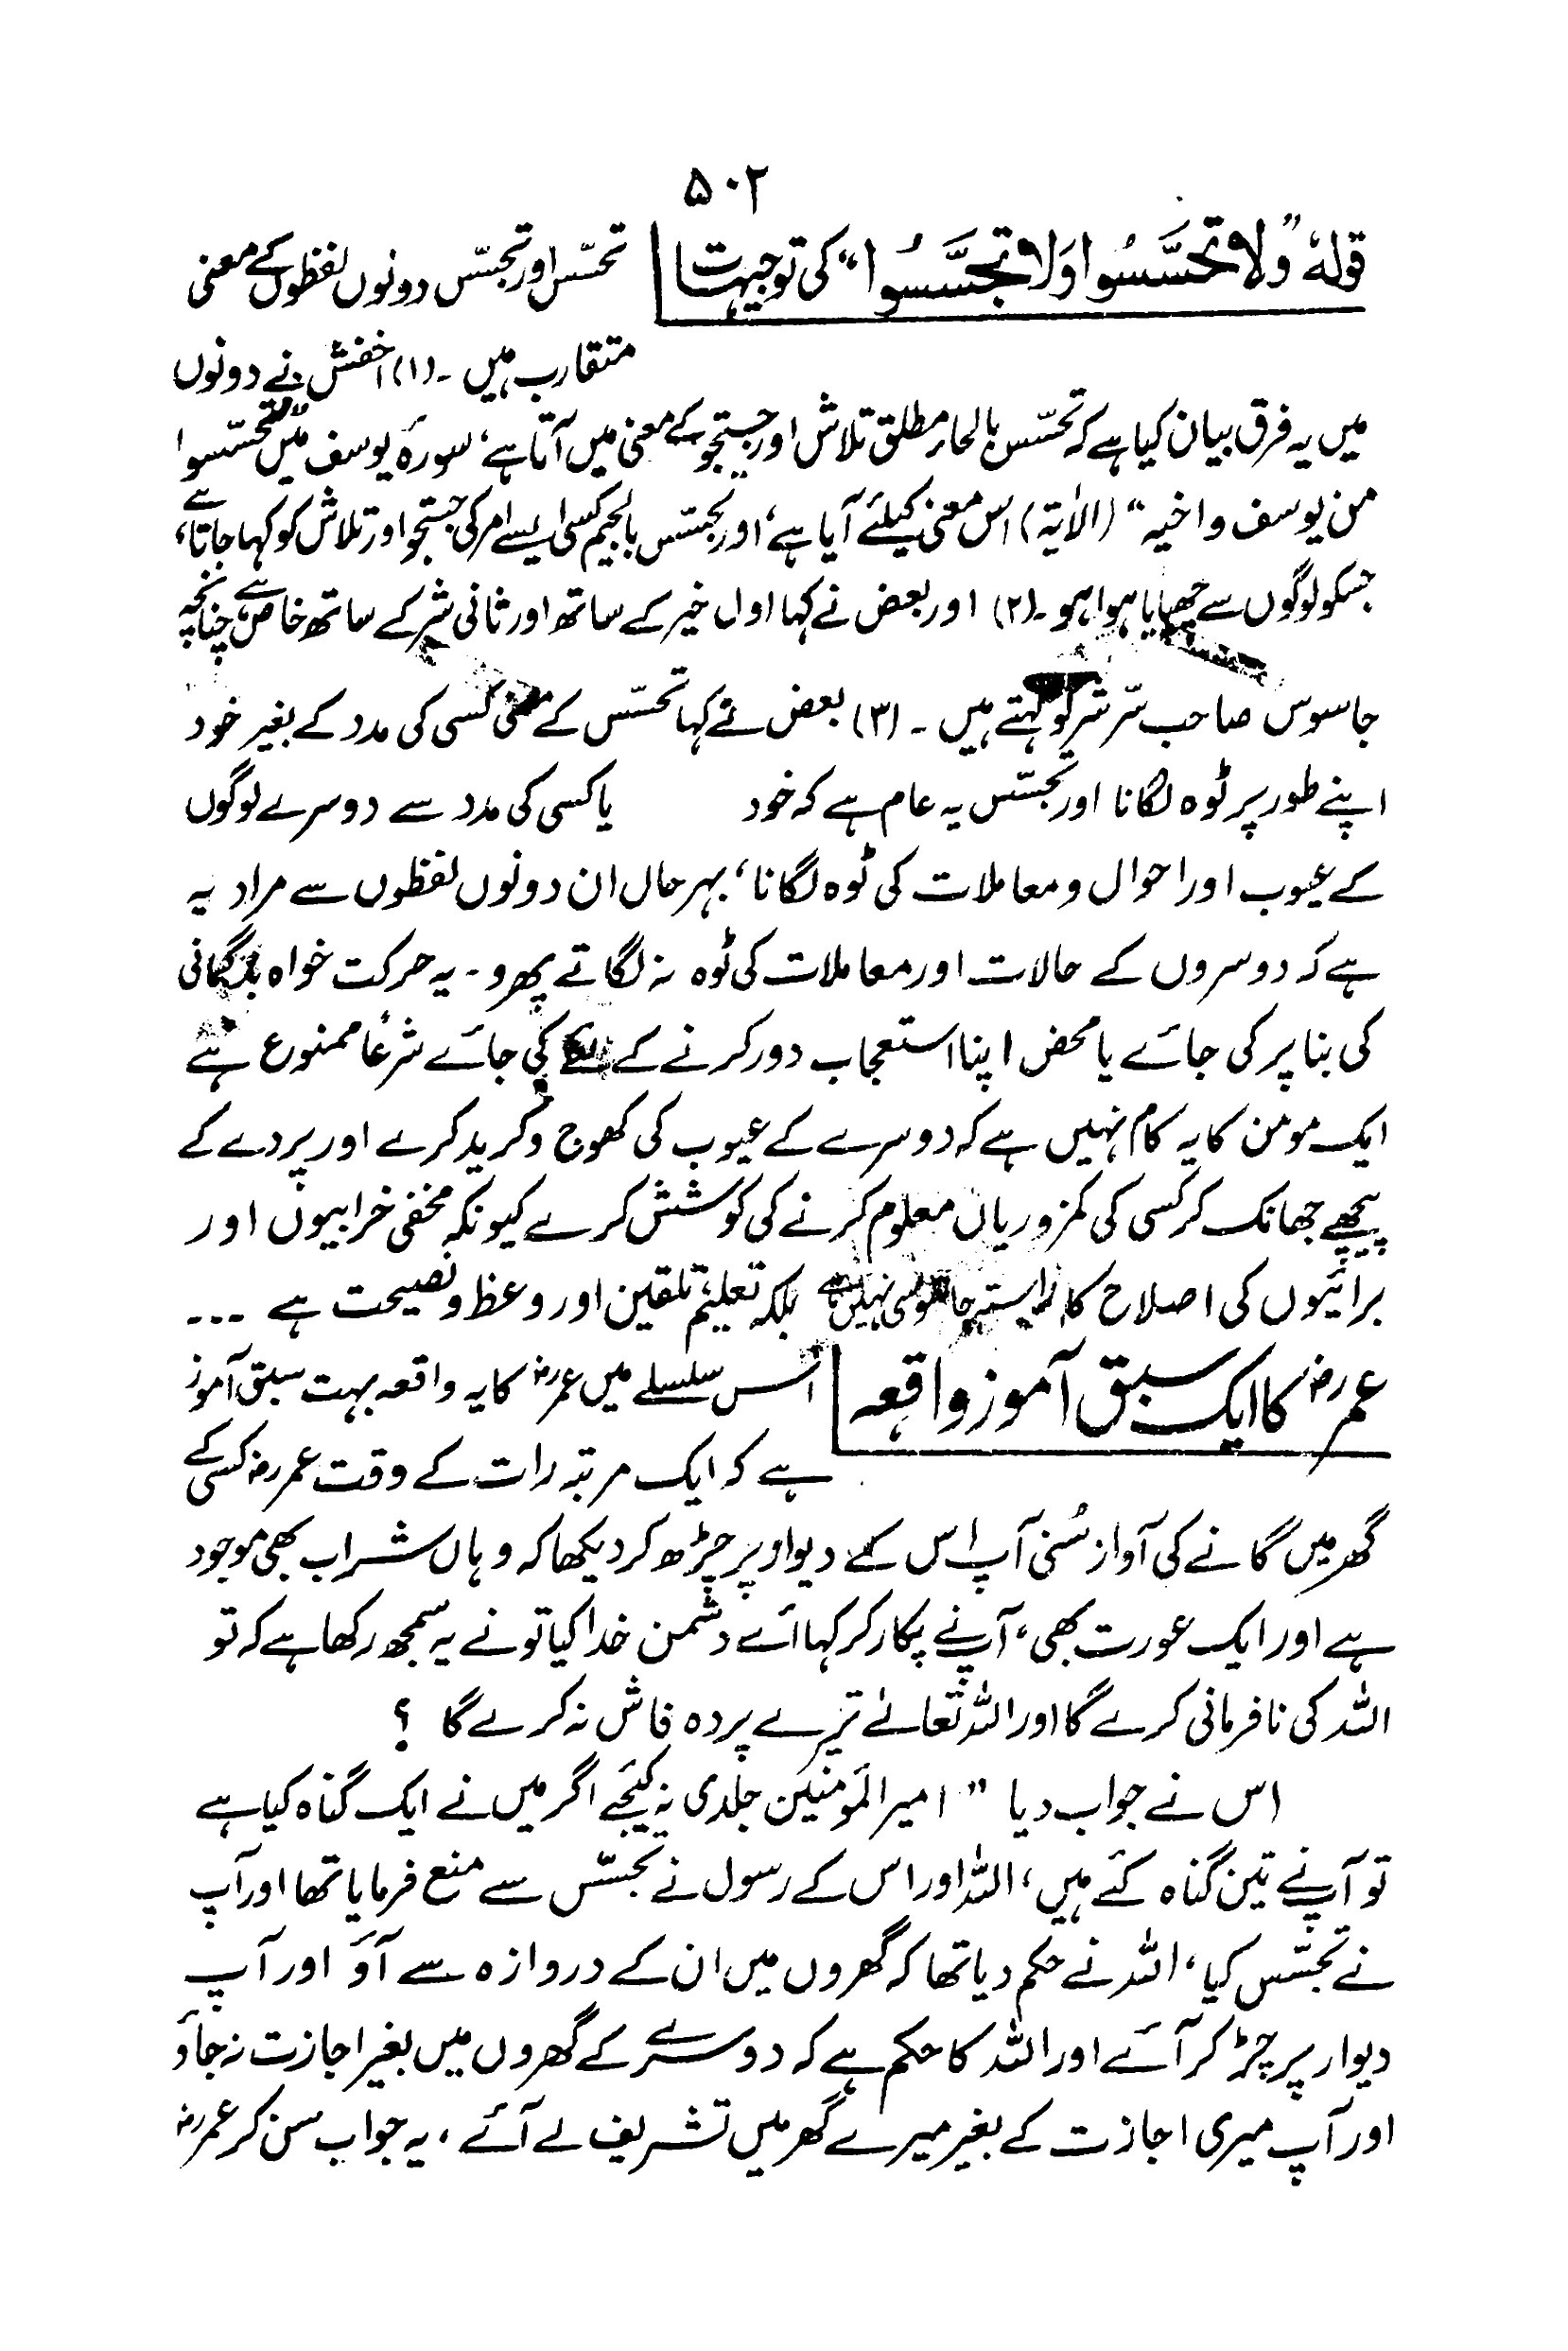 ۵۰۲
قولہٗ ”ولا تحسَّسُوا وَلا تجسَّسُوا“ کی توجیہات
تحسّس اور تجسّس دونوں لفظوں کے معنی
متقارب ہیں ۔ (۱) اخفش نے دونوں
میں یہ فرق بیان کیا ہے کہ تحسّس بالحاء مطلق تلاش اور جستجو کے معنی میں آتا ہے، سورۂ یوسف میں ”فتحسّسوا
من یوسف واخیہ“ (الاٰیۃ) اس معنی کیلئے آیا ہے، اور تجسّس بالجیم کسی ایسے امر کی جستجو اور تلاش کو کہا جاتا ہے،
جسکو لوگوں سے چھپایا ہوا ہو ۔ (۲) اور بعض نے کہا اول خیر کے ساتھ اور ثانی شر کے ساتھ خاص ہے چنانچہ
جاسوس صاحب سّر شر کو کہتے ہیں ۔ (۳) بعض نے کہا تحسّس کے معنی کسی کی مدد کے بغیر خود
اپنے طور پر ٹوہ لگانا اور تجسّس یہ عام ہے کہ خود یا کسی کی مدد سے دوسرے لوگوں
کے عیوب اور احوال و معاملات کی ٹوہ لگانا، بہر حال ان دونوں لفظوں سے مراد یہ
ہے کہ دوسروں کے حالات اور معاملات کی ٹوہ نہ لگاتے پھرو ۔ یہ حرکت خواہ بدگمانی
کی بنا پر کی جائے یا محض اپنا استعجاب دور کرنے کے لئے کی جائے شرعًا ممنوع ہے
ایک مومن کا یہ کام نہیں ہے کہ دوسرے کے عیوب کی کھوج و کرید کرے اور پردے کے
پیچھے جھانک کر کسی کی کمزوریاں معلوم کرنے کی کوشش کرے کیونکہ مخفی خرابیوں اور
برائیوں کی اصلاح کا راستہ جاسوسی نہیں ہے بلکہ تعلیم، تلقین اور وعظ و نصیحت ہے ۔۔۔
عمرؓ کا ایک سبق آموز واقعہ
اس سلسلے میں عمرؓ کا یہ واقعہ بہت سبق آموز
ہے کہ ایک مرتبہ رات کے وقت عمرؓ کسی کے
گھر میں گانے کی آواز سُنی آپ اس کے دیوار پر چڑھ کر دیکھا کہ وہاں شراب بھی موجود
ہے اور ایک عورت بھی، آپ نے پکار کر کہا اے دشمن خدا کیا تو نے یہ سمجھ رکھا ہے کہ تو
اللہ کی نافرمانی کرے گا اور اللہ تعالےٰ تیرے پردہ فاش نہ کرے گا ؟
اس نے جواب دیا ” امیر المؤمنین جلدی نہ کیجئے اگر میں نے ایک گناہ کیا ہے
تو آپ نے تین گناہ کئے ہیں، اللہ اور اس کے رسول نے تجسّس سے منع فرمایا تھا اور آپ
نے تجسّس کیا، اللہ نے حکم دیا تھا کہ گھروں میں ان کے دروازہ سے آؤ اور آپ
دیوار پر چڑ کر آئے اور اللہ کا حکم ہے کہ دوسرے کے گھروں میں بغیر اجازت نہ جاؤ
اور آپ میری اجازت کے بغیر میرے گھر میں تشریف لے آئے ، یہ جواب سن کر عمرؓ